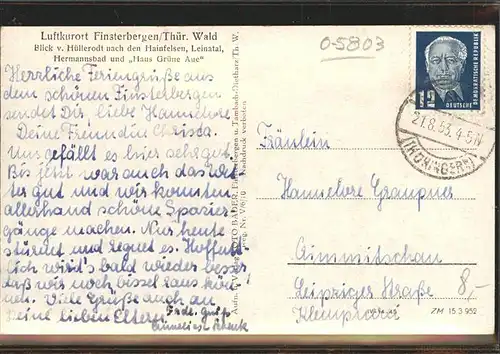 Luftkurort Finsterbergen/Thür. Wald
Blick v. Hüllerodt nach den Hainfelsen, Leinatal,
Hermannsbad und „Haus Grüne Aue"
Herrliche Feriengrüße aus
dem schönen Finsterbergen
sendet Dir, liebe Hannelore
Deine Freundin Christa.
Uns gefällt es hier sehr gut.
Bis jetzt war auch das Wet-
ter gut und wir konnten
allerhand schöne Spazier-
gänge machen. Nur heute
stürmt und regnet es. Hoffent-
lich wird's bald wieder besser
daß wir noch bissel raus kön-
nen. Viele Grüße auch an
Deine lieben Eltern!
Schenk
FOTO BADER, Finsterbergen u. Tambach-Dietharz/Th. W.
Nachdruck verboten
0-5803
12
DEUTSCHE
DEMOKRATISCHE REPUBLIK
21.8.53.4-5N
Fräulein
Hannelore Graupner
Crimmitschau
Leipziger Straße
8,-
Klempnerei
ZM 15 3 952